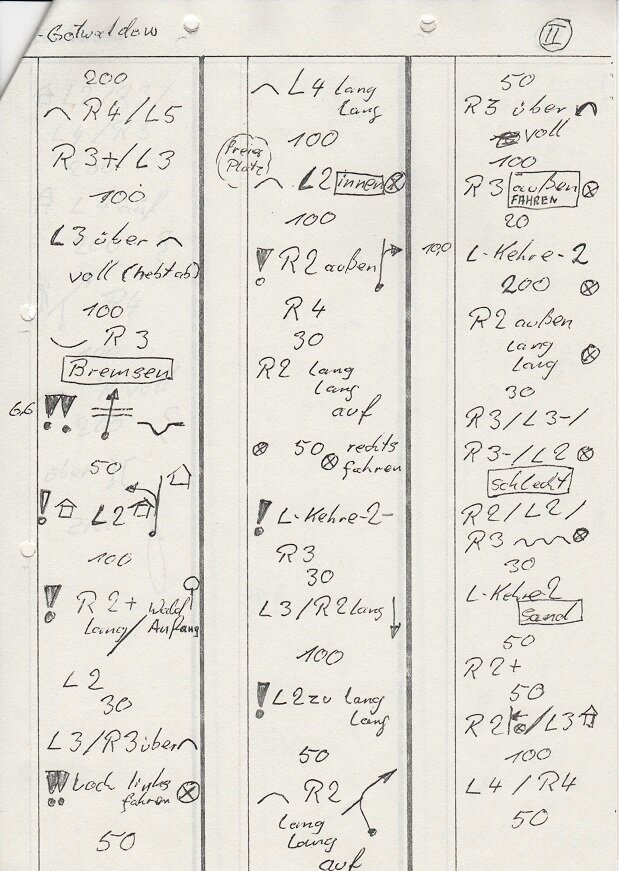 -Gotwaldow
II
200
R4/L5
R3+/L3
100
L3 über
voll (hebt ab)
100
R3
Bremsen
6,6 !!
50
! L2
100
! R2+ Wald
lang/Anfang
L2
30
L3/R3 über
!! Loch links
fahren
50
L4 lang
lang
100
freier
Platz
L2 innen
100
! R2 außen
R4
30
R2 lang
lang
auf
50 rechts
fahren
! L-Kehre-2-
R3
30
L3/R2 lang
100
! L2 zu lang
lang
50
R2
lang
lang
auf
50
R3 über
voll
100
R3 außen
FAHREN
20
10,0 L-Kehre-2
200
R2 außen
lang
lang
30
R3/L3-/
R3-/L2
schlecht
R2/L2/
R3
30
L-Kehre-2
Sand
50
R2+
50
R2/L3
100
L4/R4
50